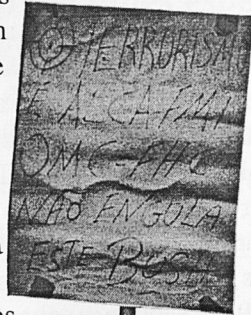 O TERRORISM
É ALCA-FMI
OMC-FHC
NÃO ENGULA
ESTE BUSH